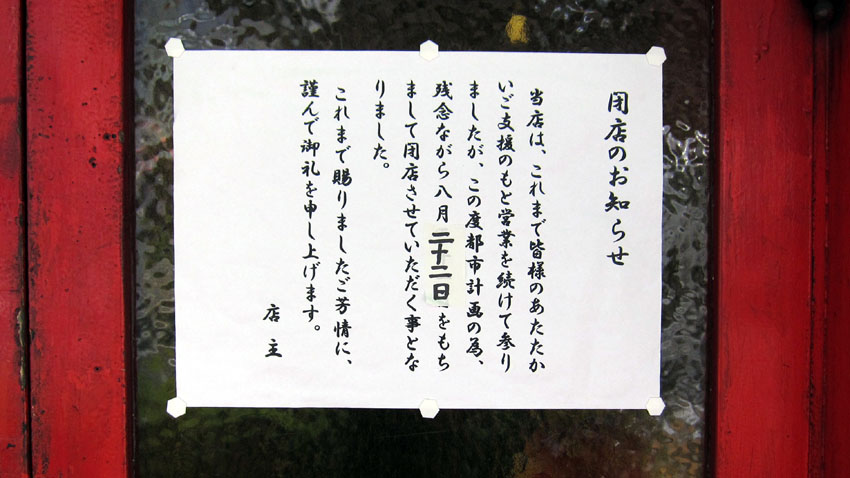 閉店のお知らせ
当店は、これまで皆様のあたたか
いご支援のもと営業を続けて参り
ましたが、この度都市計画の為、
残念ながら八月二十二日をもち
まして閉店させていただく事とな
りました。
これまで賜りましたご芳情に、
謹んで御礼を申し上げます。
店主